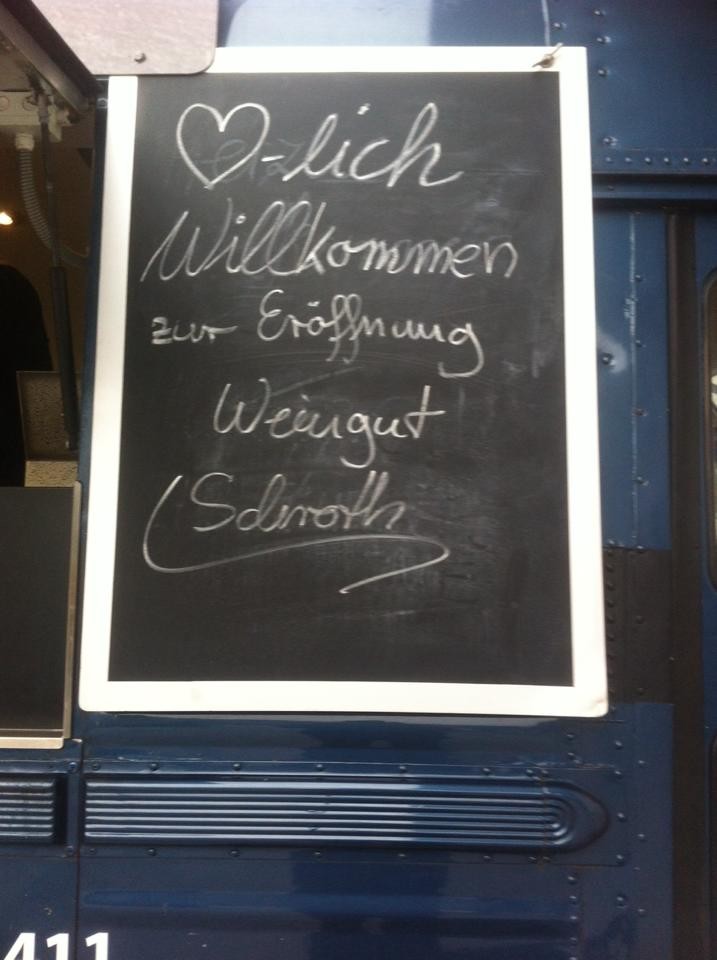 ♡-lich
Willkommen
zur Eröffnung
Weingut
Schroth
411